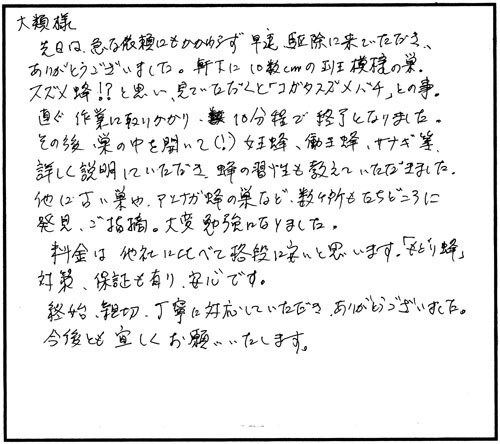 大類様
先日は、急な依頼にもかかわらず早速、駆除に来ていただき、
ありがとうございました。軒下に10数cmの斑模様の巣。
スズメ蜂!?と思い、見ていただくと「コガタスズメバチ」との事。
直ぐ作業に取りかかり、10分程で終了となりました。
その後、巣の中を開いて(!)女王蜂、働き蜂、サナギ等、
詳しく説明していただき、蜂の習性も教えていただきました。
他に古い巣や、アシナガ蜂の巣など、数ヶ所もたちどころに
発見、ご指摘。大変勉強になりました。
料金は他社に比べて格段に安いと思います。「もどり蜂」
対策、保証も有り、安心です。
終始、親切、丁寧に対応していただき、ありがとうございました。
今後とも宜しくお願いいたします。